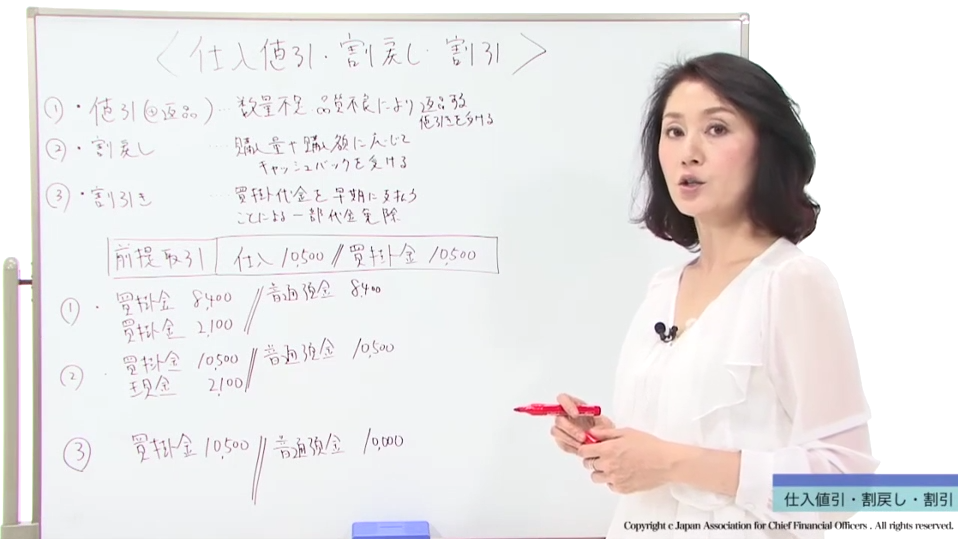 〈仕入値引・割戻し・割引〉
① ・値引(㊀返品) … 数量不足 品質不良により 返品致
値引きを受ける
② ・割戻し … 購入量や購入額に応じて
キャッシュバックを受ける
③ ・割引き … 買掛代金を早期に支払う
ことによる一部代金免除
前提取引 仕入 10,500 // 買掛金 10,500
① ・ 買掛金 8,400 // 普通預金 8,400
買掛金 2,100
② ・ 買掛金 10,500 // 普通預金 10,500
現金 2,100
③ 買掛金 10,500 // 普通預金 10,000
仕入値引・割戻し・割引
Copyright c Japan Association for Chief Financial Officers . All rights reserved.